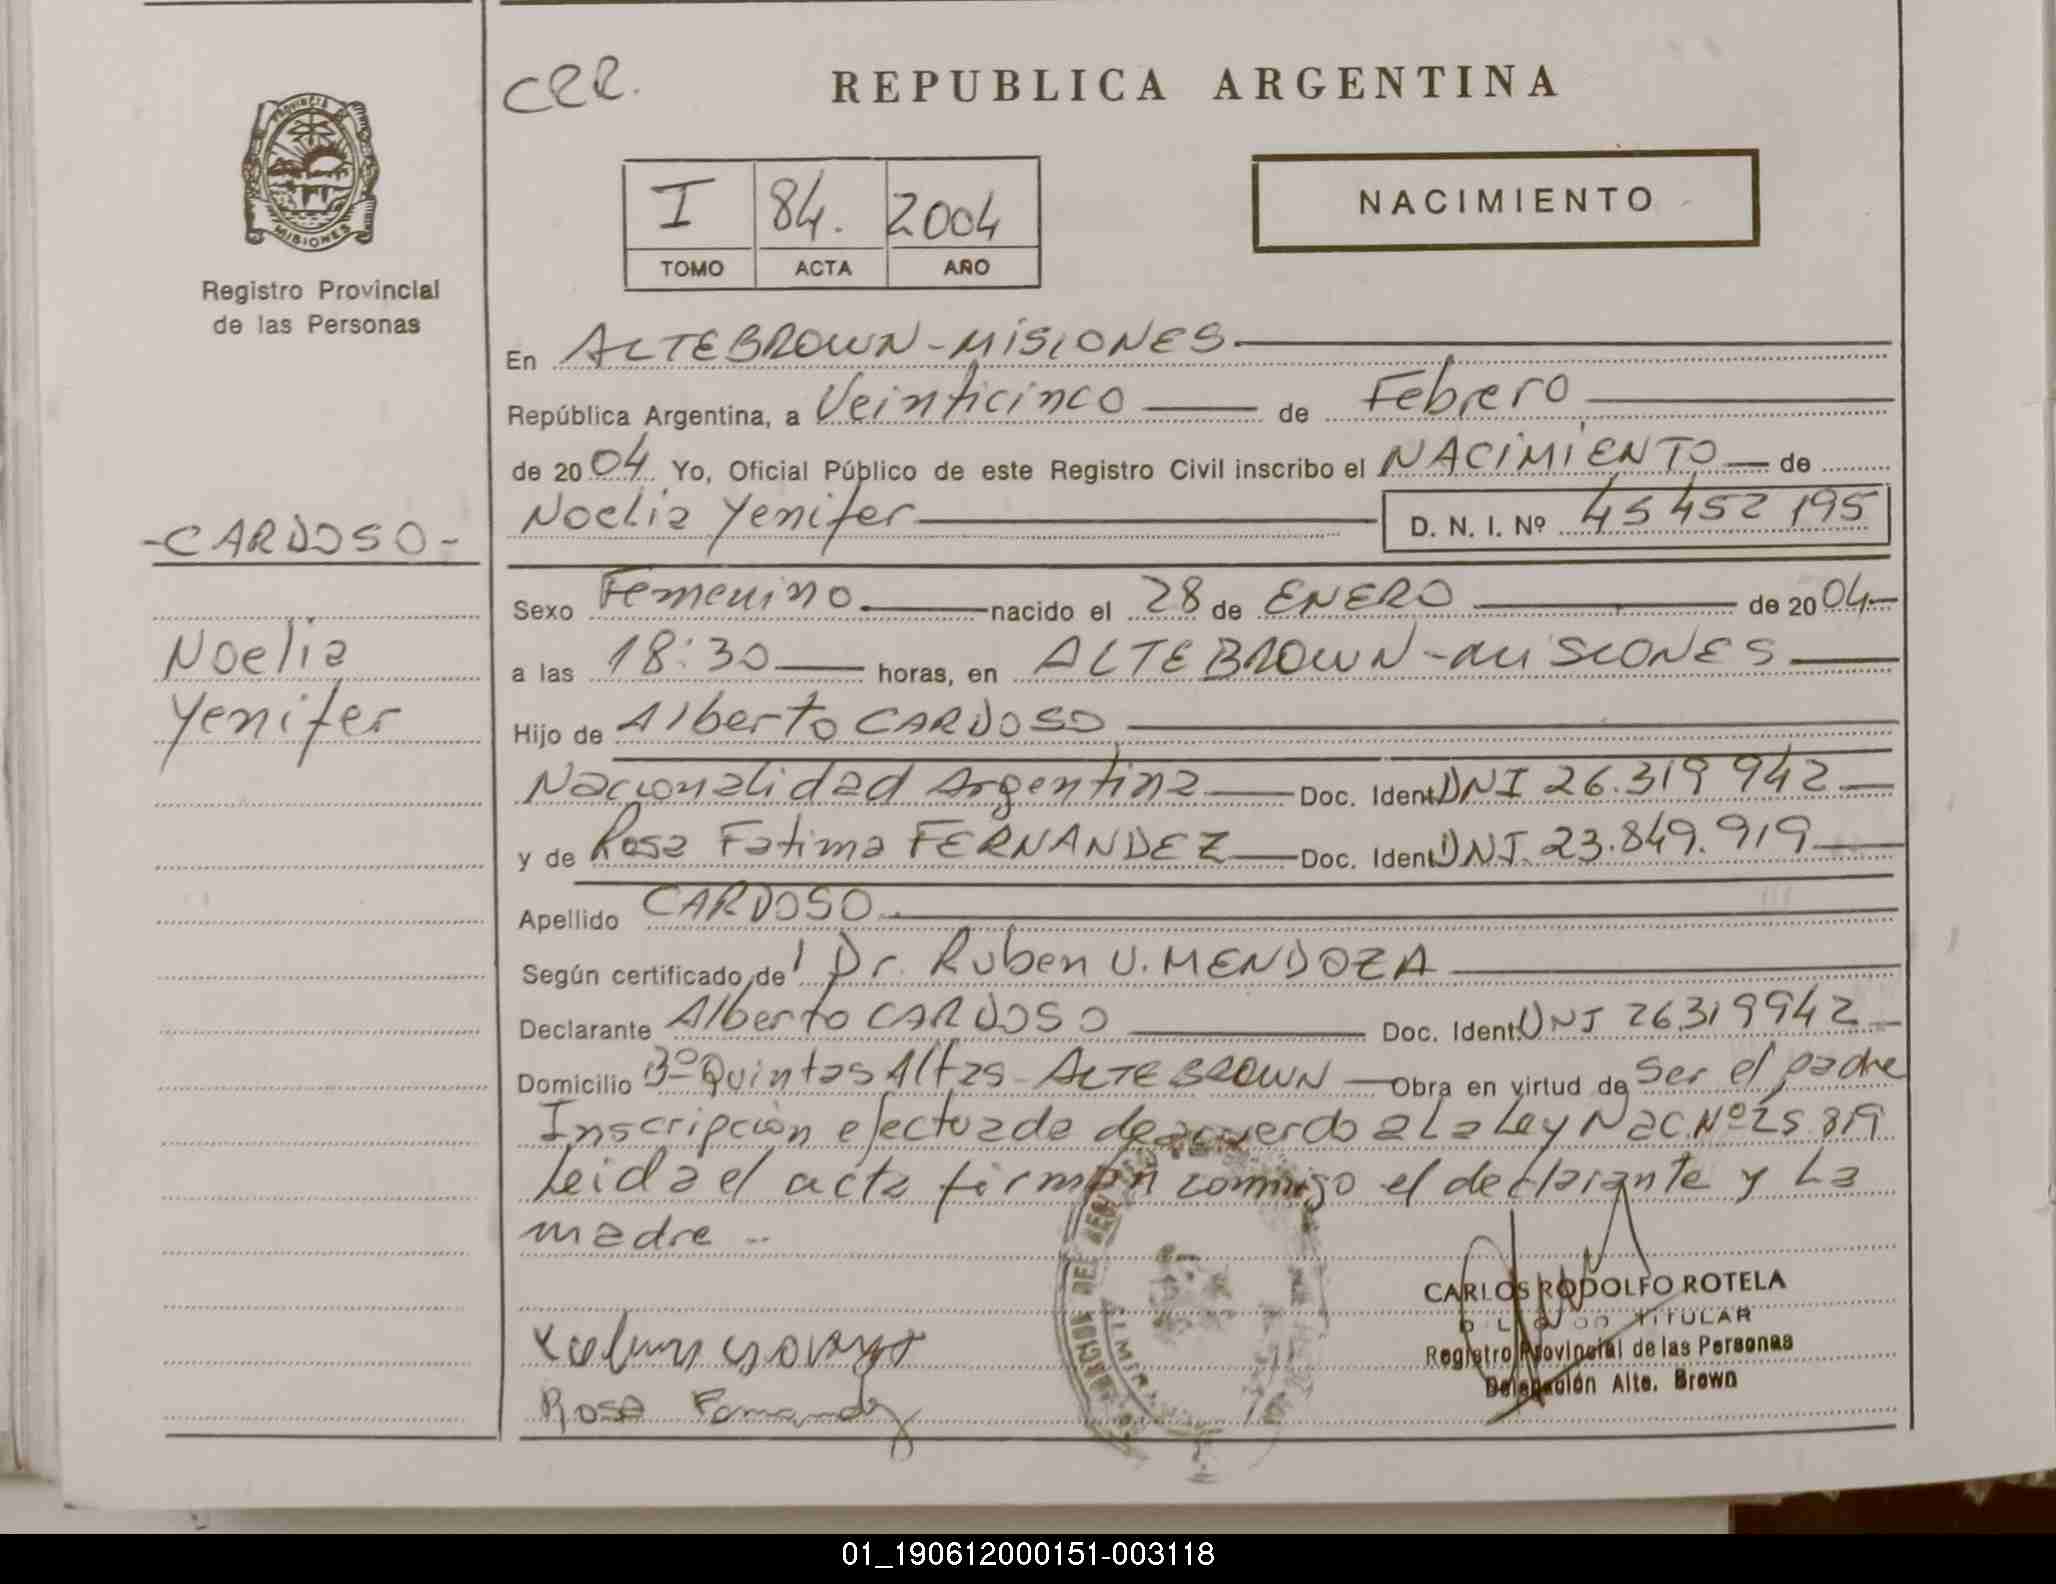 CRR.
REPUBLICA ARGENTINA
PROVINCIA
MISIONES
Registro Provincial
de las Personas
I 84. 2004
TOMO ACTA AÑO
NACIMIENTO
En ALTEBROWN-MISIONES
República Argentina, a Veinticinco de Febrero
de 2004 Yo, Oficial Público de este Registro Civil inscribo el NACIMIENTO de
Noelia Yenifer D. N. I. Nº 45 452 195
-CARDOSO-
Noelia
Yenifer
Sexo Femenino nacido el 28 de ENERO de 2004
a las 18:30 horas, en ALTEBROWN-MISIONES
Hijo de Alberto CARDOSO
Nacionalidad Argentina Doc. Ident. DNI 26.319 942
y de Rosa Fatima FERNANDEZ Doc. Ident. DNI. 23.849.919
Apellido CARDOSO
Según certificado de l Dr. Ruben U. MENDOZA
Declarante Alberto CARDOSO Doc. Ident. DNI 26319942
Domicilio Bº Quintas Altas - ALTE BROWN Obra en virtud de Ser el padre
Inscripción efectuada de acuerdo a La Ley Nac. Nº 25 819
Leida el acta firman conmigo el declarante y La
madre
CARLOS RODOLFO ROTELA
TITULAR
Registro Provincial de las Personas
Delegación Alte. Brown
Rosa Fernandez
01_190612000151-003118